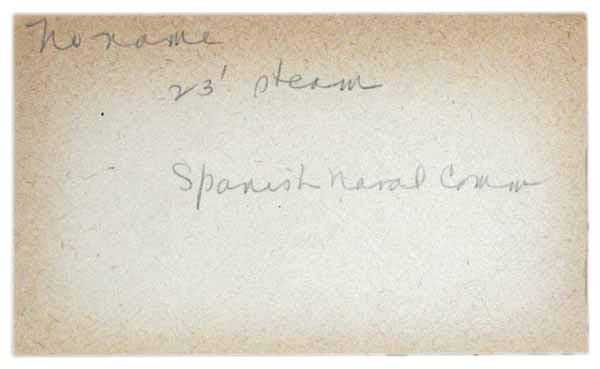 No name
23' steam
Spanish Naval Comm